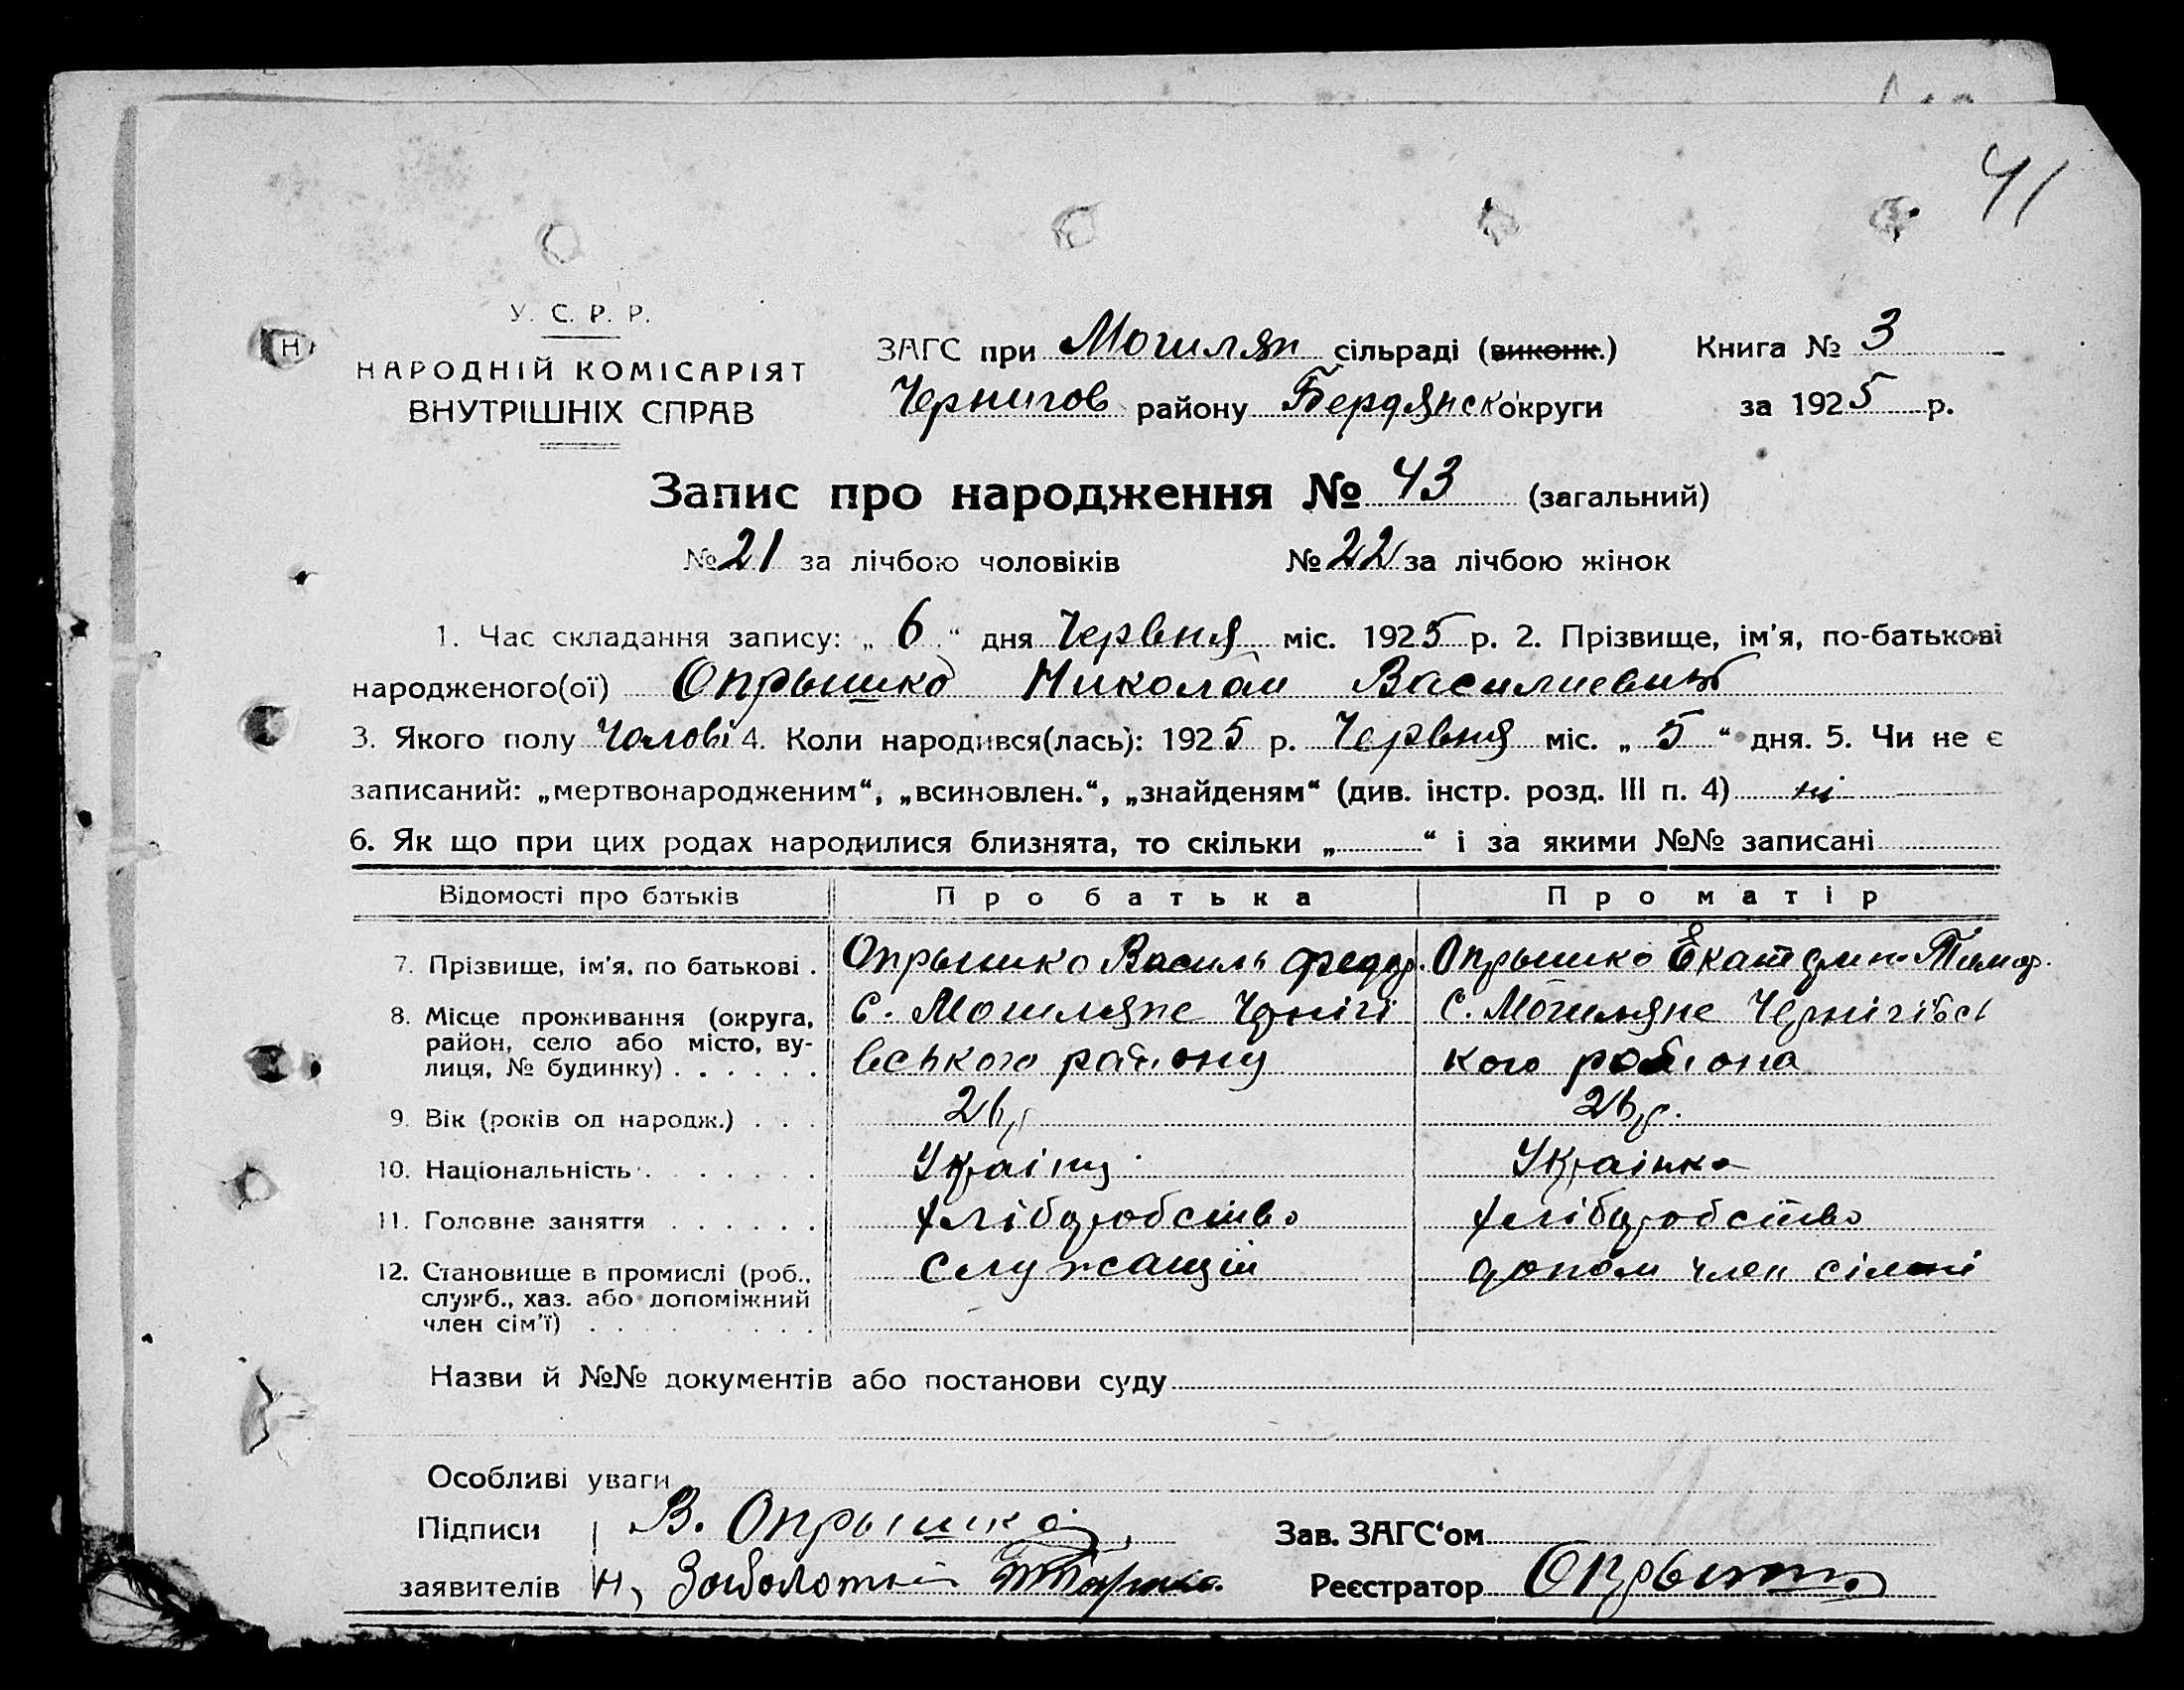 41
У. С. Р. Р.
НАРОДНІЙ КОМІСАРІЯТ
ВНУТРІШНІХ СПРАВ
ЗАГС при Могилян сільраді (виконк.) Книга № 3
Чернигов району Бердянск округи за 1925 р.
Запис про народження № 43 (загальний)
№ 21 за лічбою чоловіків № 22 за лічбою жінок
1. Час складання запису: „ 6 “ дня Червня міс. 1925 р. 2. Прізвище, ім'я, по-батькові
народженого(ої) Опрышко Николай Василиевич
3. Якого полу Чолові 4. Коли народився(лась): 1925 р. Червня міс. „ 5 “ дня. 5. Чи не є
записаний: „мертвонародженим“, „всиновлен.“, „знайденям“ (див. інстр. розд. III п. 4) ні
6. Як що при цих родах народилися близнята, то скільки „ “ і за якими №№ записані
Відомості про батьків Про батька Про матір
7. Прізвище, ім'я, по батькові . Опрышко Василь Федор. Опрышко Екатерина Тимоф.
8. Місце проживання (округа, район, село або місто, вулиця, № будинку) . . . . . . С. Могиляне Чернігі С. Могиляне Чернігівсь
вського району кого района
9. Вік (років од народж.) . . . 26 р 26 р.
10. Національність . . . . . . . Українц Українка
11. Головне заняття . . . . . . хліборобство хліборобство
12. Становище в промислі (роб., служб., хаз. або допоміжний член сім'ї) . . . . . . . служащий допом член сімті
Назви й №№ документів або постанови суду
Особливі уваги
Підписи В. Опрышко Зав. ЗАГС'ом
заявителів Н, Заболотній Реєстратор Опрышко